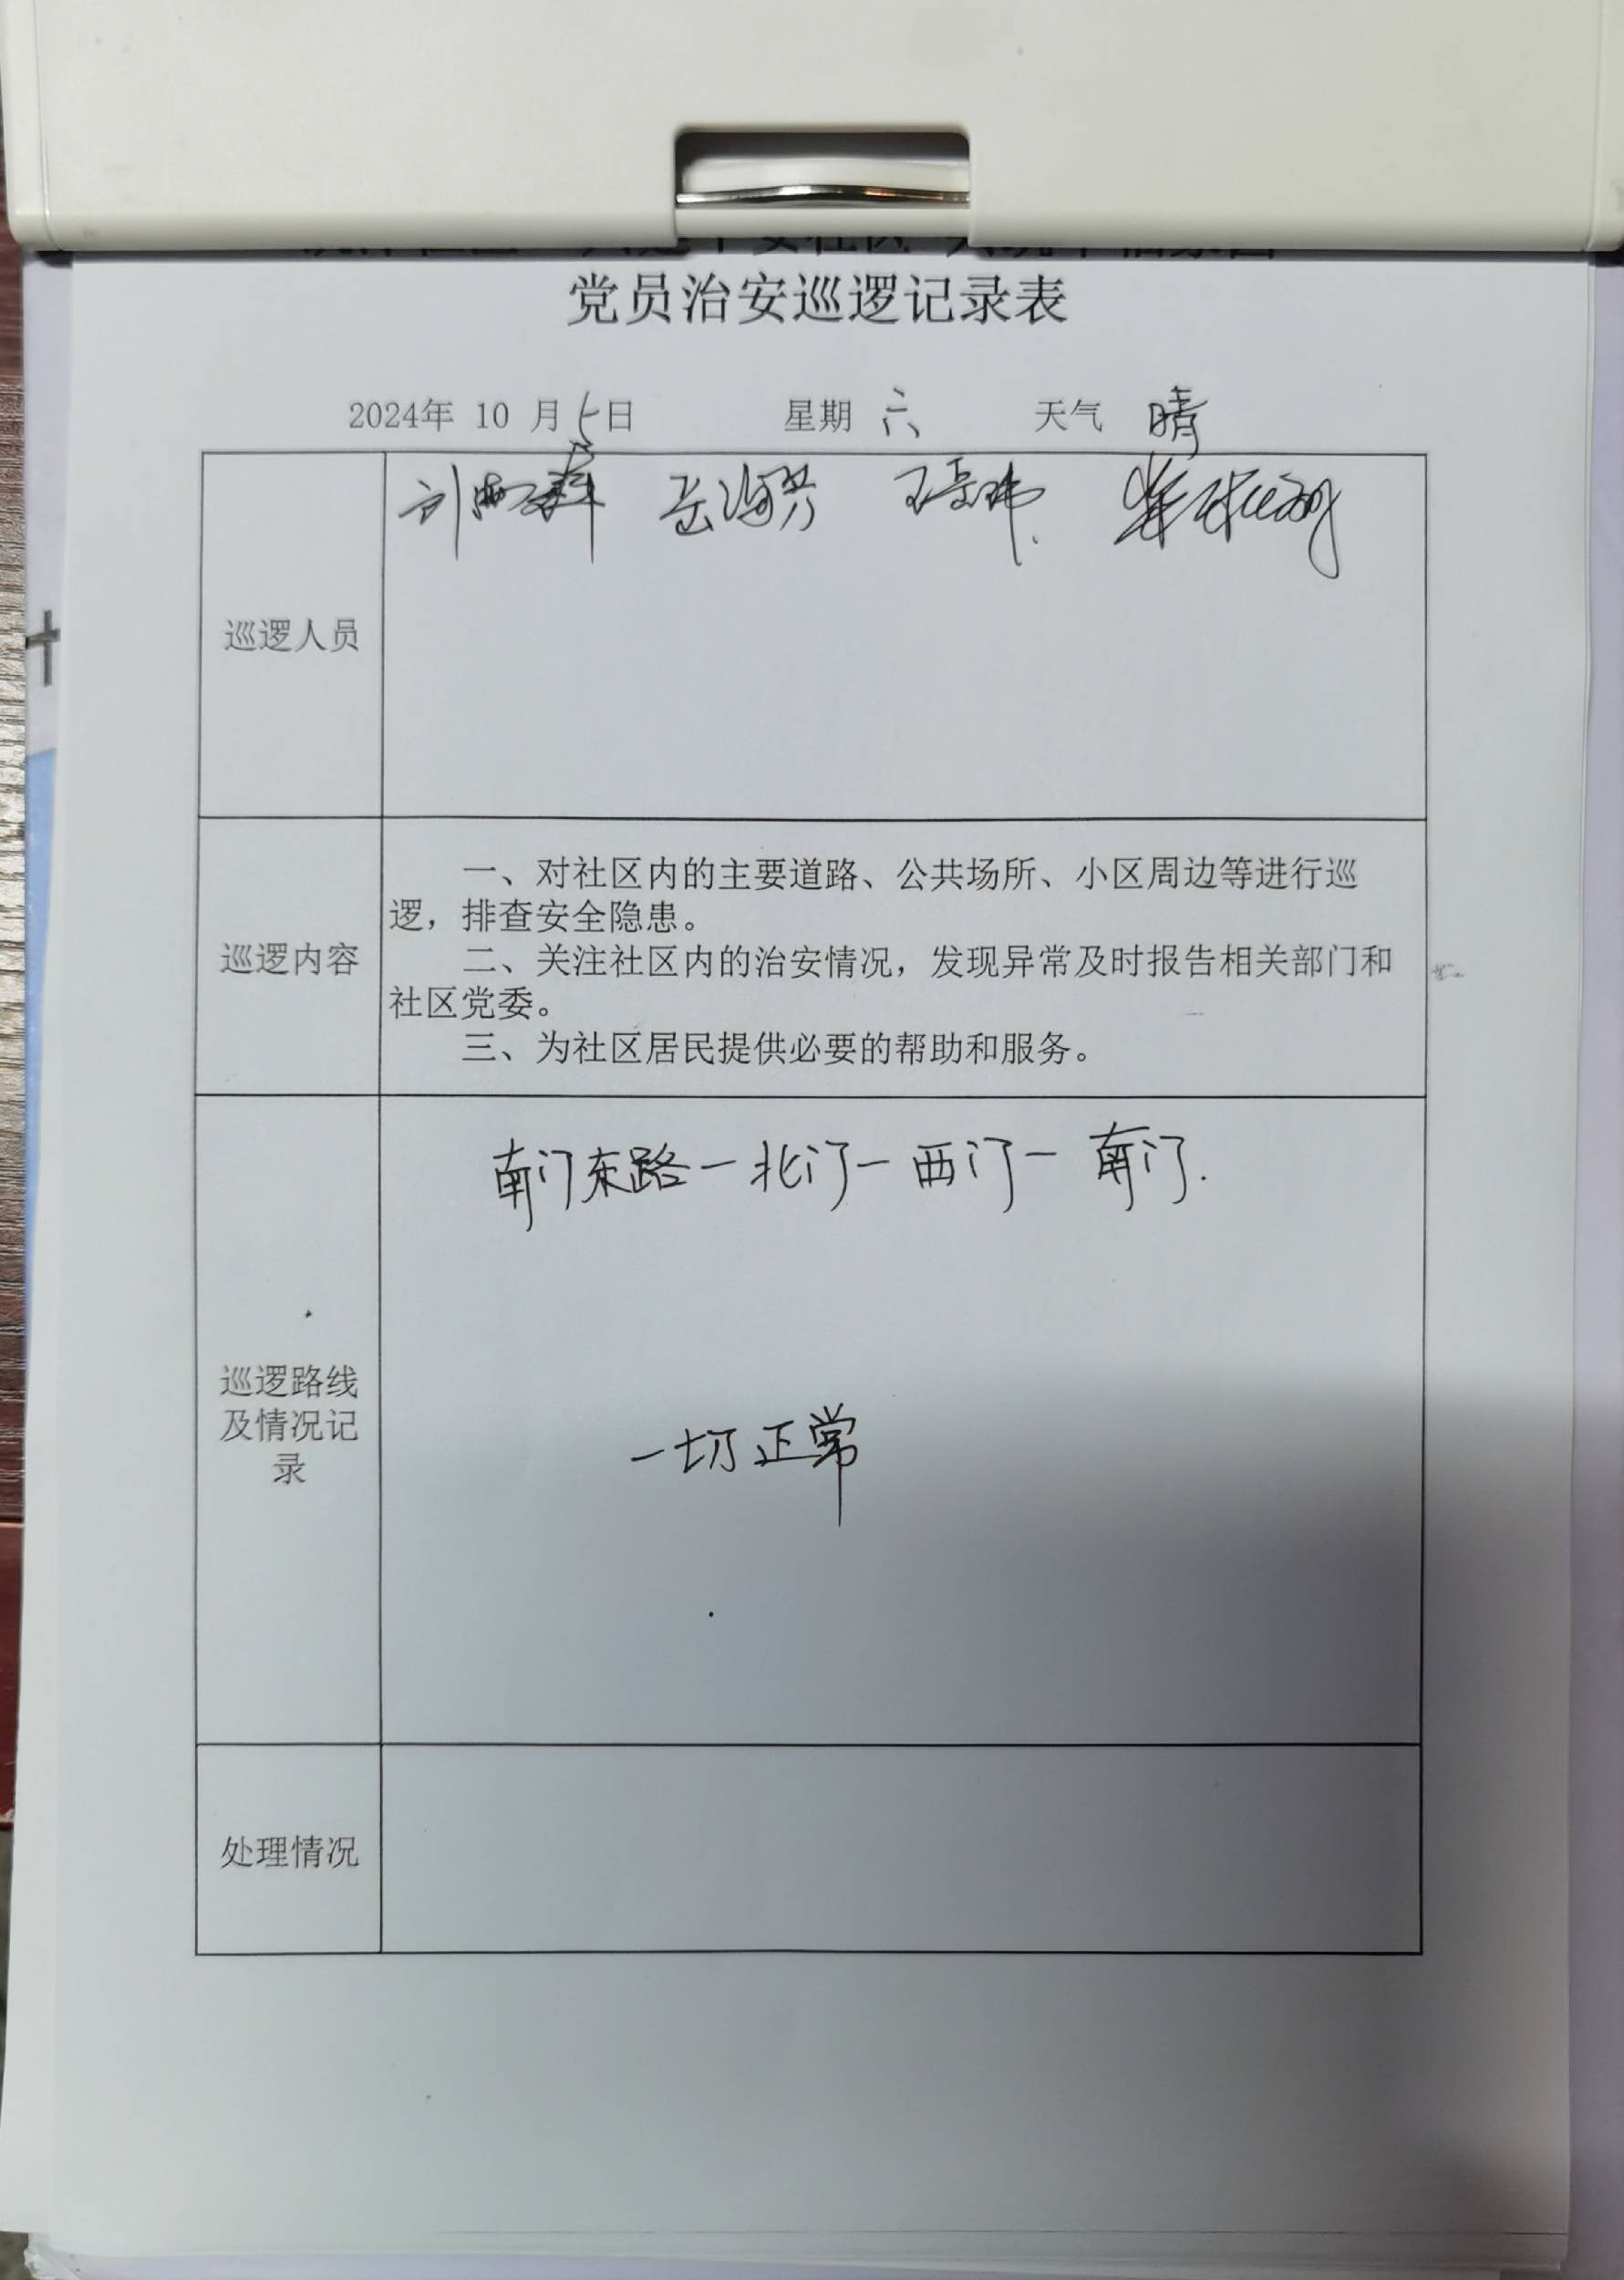 党员治安巡逻记录表
2024年 10 月 5 日 星期 六 天气 晴
巡逻人员
巡逻内容
一、对社区内的主要道路、公共场所、小区周边等进行巡
逻，排查安全隐患。
二、关注社区内的治安情况，发现异常及时报告相关部门和
社区党委。
三、为社区居民提供必要的帮助和服务。
巡逻路线
及情况记
录
南门东路一北门一西门一南门.
一切正常
处理情况